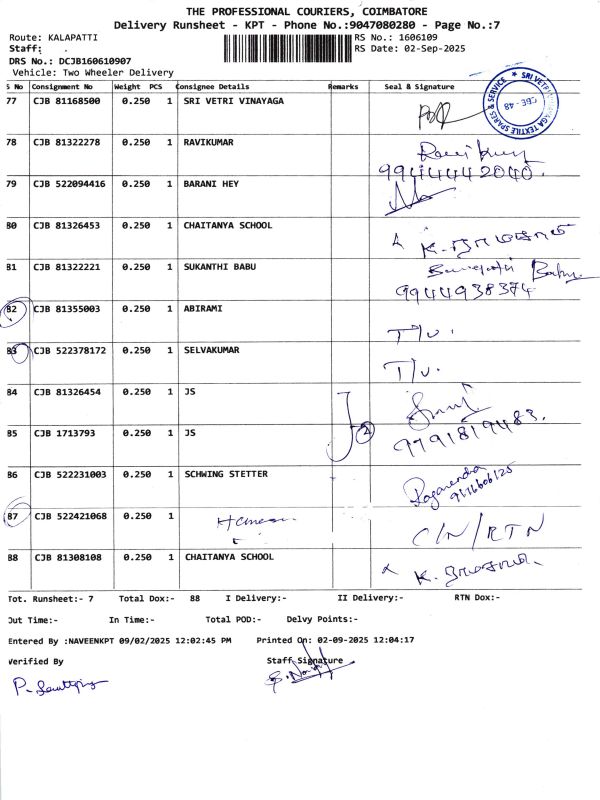 THE PROFESSIONAL COURIERS, COIMBATORE
Delivery Runsheet - KPT - Phone No.:9047080280 - Page No.:7
Route: KALAPATTI RS No.: 1606109
Staff: . RS Date: 02-Sep-2025
DRS No.: DCJB160610907
Vehicle: Two Wheeler Delivery
S No Consignment No Weight PCS Consignee Details Remarks Seal & Signature
77 CJB 81168500 0.250 1 SRI VETRI VINAYAGA
SRI VETRI VINAYAGA TEXTILE SPARES & SERVICE ★ CBE-48
78 CJB 81322278 0.250 1 RAVIKUMAR Ravi kumar
9944442040.
79 CJB 522094416 0.250 1 BARANI HEY
80 CJB 81326453 0.250 1 CHAITANYA SCHOOL K.
81 CJB 81322221 0.250 1 SUKANTHI BABU Babu
9944938374
82 CJB 81355003 0.250 1 ABIRAMI T/v.
83 CJB 522378172 0.250 1 SELVAKUMAR T/v.
84 CJB 81326454 0.250 1 JS
85 CJB 1713793 0.250 1 JS 2 9791819483.
86 CJB 522231003 0.250 1 SCHWING STETTER Rajarendra
9176606125
87 CJB 522421068 0.250 1 C/N/RTN
88 CJB 81308108 0.250 1 CHAITANYA SCHOOL K.
Tot. Runsheet:- 7 Total Dox:- 88 I Delivery:- II Delivery:- RTN Dox:-
Out Time:- In Time:- Total POD:- Delvy Points:-
Entered By :NAVEENKPT 09/02/2025 12:02:45 PM Printed On: 02-09-2025 12:04:17
Verified By Staff Signature